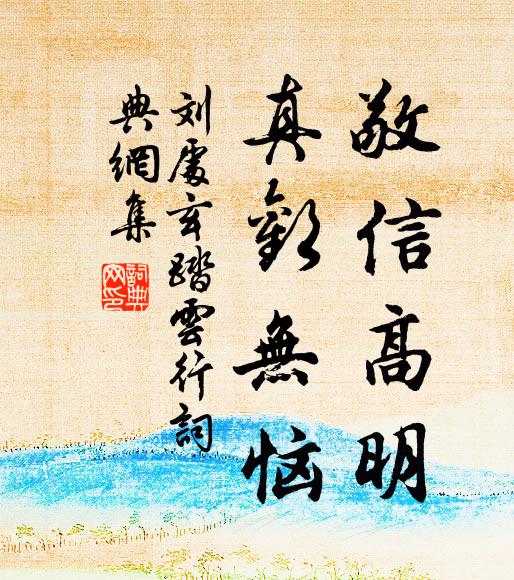 敬信高明
真歡無惱
刘處玄踏雲行詞
典網集
詞典網印